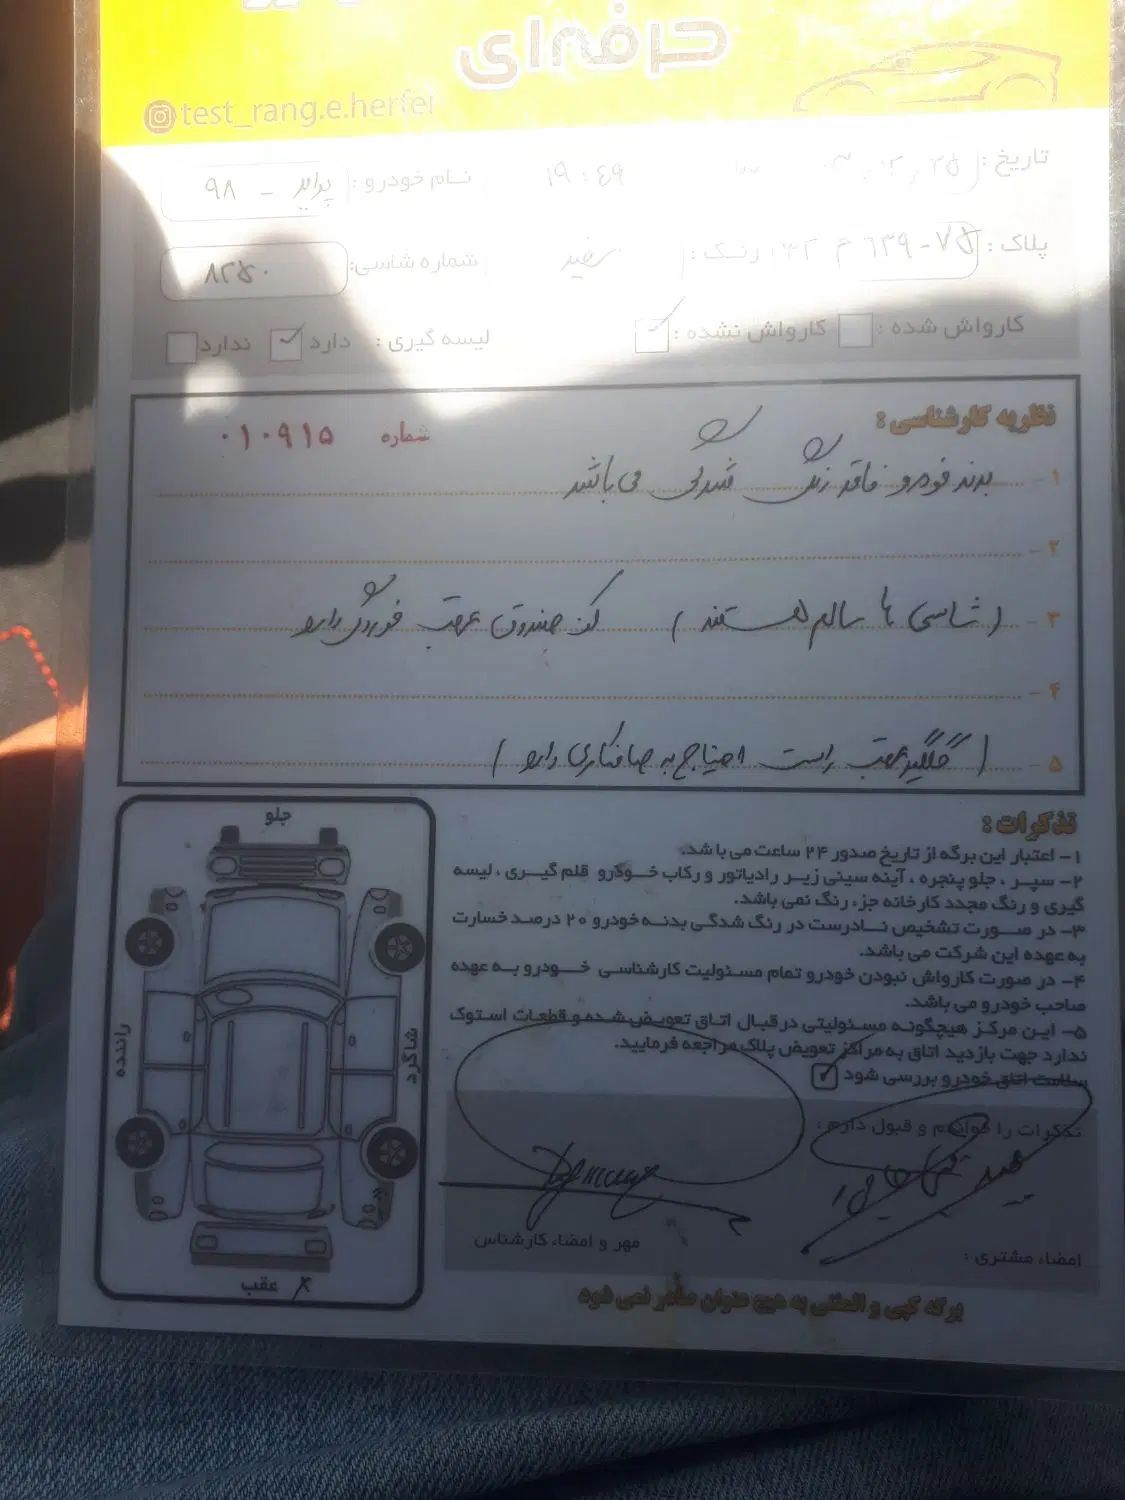 حرفه‌ای
test_rang.e.herfei
تاریخ : ۱۹:۴۹ نام خودرو : پراید - ۹۸
پلاک : ۷۵ - ۶۳۹ م ۳۲ رنگ : سفید شماره شاسی: ۸۲۵۰
کارواش شده : کارواش نشده : لیسه گیری : دارد ندارد
نظریه کارشناسی :
شماره ۰۱۰۹۱۵
۱- بدنه خودرو فاقد رنگ شدگی می باشد
۲-
۳- (شاسی ها سالم هستند) کف صندوق عقب خوردگی دارد
۴-
۵- (گلگیر عقب راست احتیاج به صافکاری دارد)
جلو
راننده
شاگرد
عقب
تذکرات :
۱- اعتبار این برگه از تاریخ صدور ۲۴ ساعت می باشد.
۲- سپر ، جلو پنجره ، آینه سینی زیر رادیاتور و رکاب خودرو قلم گیری ، لیسه
گیری و رنگ مجدد کارخانه جزء رنگ نمی باشد.
۳- در صورت تشخیص نادرست در رنگ شدگی بدنه خودرو ۲۰ درصد خسارت
به عهده این شرکت می باشد.
۴- در صورت کارواش نبودن خودرو تمام مسئولیت کارشناسی خودرو به عهده
صاحب خودرو می باشد.
۵- این مرکز هیچگونه مسئولیتی در قبال اتاق تعویض شده و قطعات استوک
ندارد جهت بازدید اتاق به مراکز تعویض پلاک مراجعه فرمایید.
سلامت اتاق خودرو بررسی شود
تذکرات را خواندم و قبول دارم :
مهر و امضاء کارشناس
امضاء مشتری :
برگه کپی و المثنی به هیچ عنوان صادر نمی شود